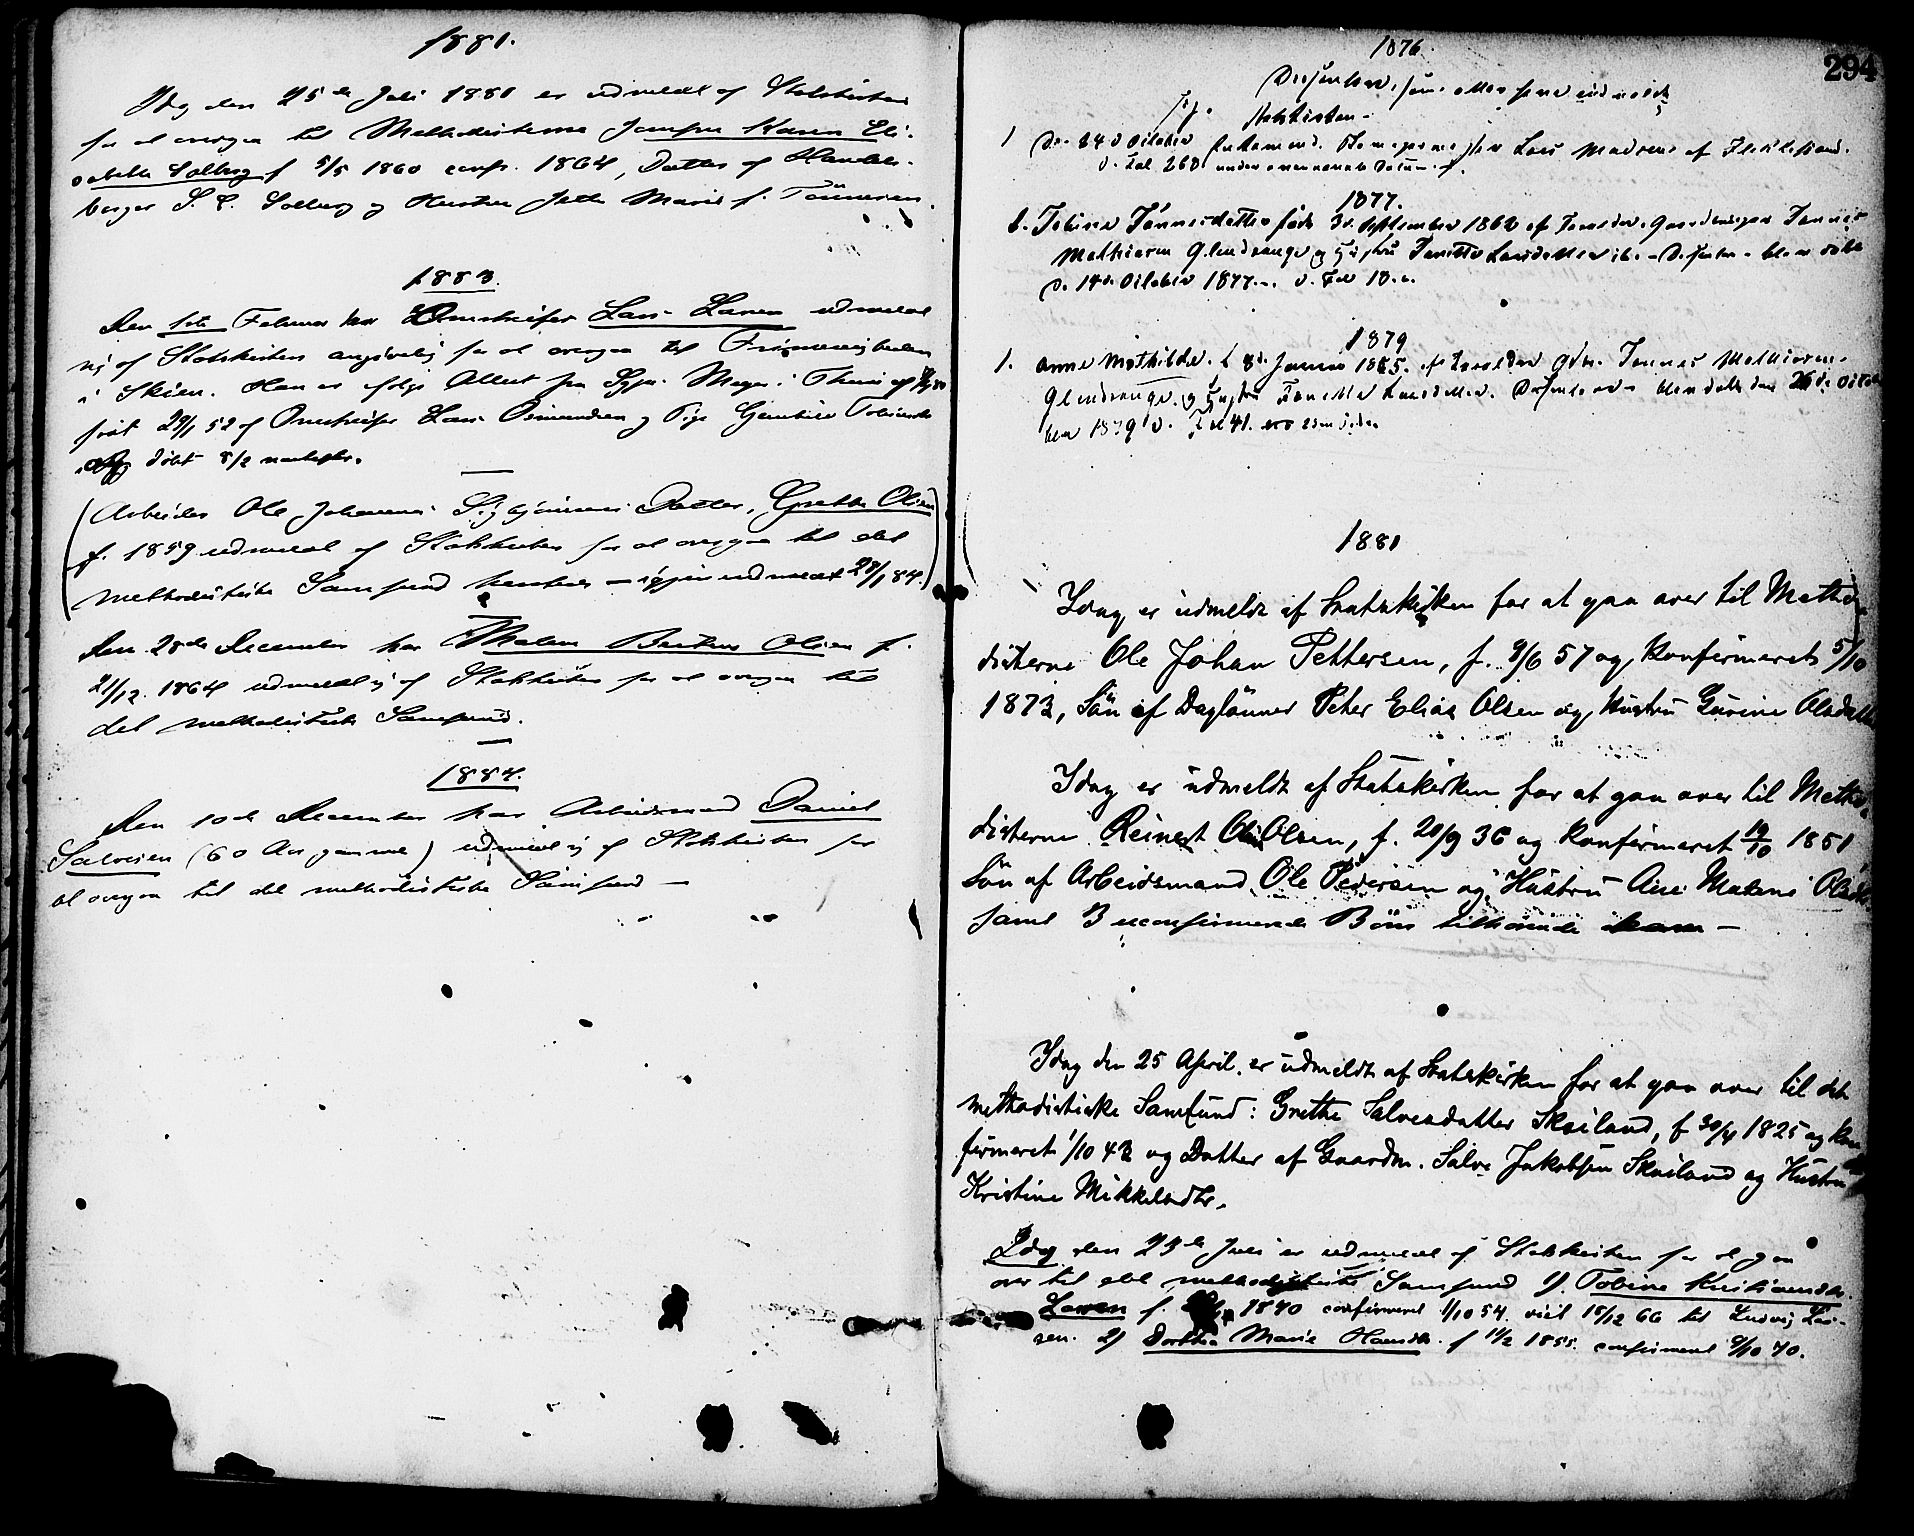 1881.
Idag den 25de Juli 1881 er udmeldt af Statskirken
for at overgaa til Methodisterne Jomfru Karen Eli-
sabeth Solberg f 5/5 1860 conf. 1864, Datter af Handels-
borger S. C. Solberg og Hustru Jette Marie f. Tönnesen.
1883.
Den 1ste Februar har Lars Larsen udmeldt
sig af Statskirken angivelig for at overgaa til Frimenigheden
i Skien. Han er ifølge Attest fra Sgpr. Meyer i
født 29/1 52 af Lars Osmundsen og Pige Gunhild
og døbt 8/2 næstefter.
(Arbeider Ole Johannes Datter, Grethe Olsen
f. 1859 udmeldt af Statskirken for at overgaa til det
methodistiske Samfund igjen indmeldt 28/1 84.)
Den 28de December har Thalen Olsen f.
21/12 1864 udmeldt sig af Statskirken for at overgaa til
det methodistiske Samfund.
1884.
Den 10de December har Arbeidsmand Daniel
Salvesen (60 Aar gammel) udmeldt sig af Statskirken for
at overgaa til det methodistiske Samfund —
294
1876.
Dissentere, som ere indmeldte
i Statskirken.
1 Den 24de October Lars Madsens af Flekkefjord.
v. Fol. 268 under ovennævnte Datum.
1877.
1. Tobine Tönnesdatter født 30. September 1862 af Forældre Gaardbruger Tönnes
Mathiasen Glendrange og Hustru Larsdatter ib. - Dissenter - blev døbt
d. 14de October 1877. v. Fol 18.
1879
1. Anne Mathilde f. 8de Januar 1865. af Forældre Gdm. Tönnes Mathiasen
Glendrange og Hustru Larsdatter. Dissentere - blev døbt den 26de Octo-
ber 1879 v. Fol 41.
1881
Idag er udmeldt af Statskirken for at gaa over til Metho-
disterne Ole Johan Pettersen, f. 9/6 57 og Konfirmeret 5/10
1873, Sön af Daglönner Peter Elias Olsen og Hustru Gurine Olsdatter
Idag er udmeldt af Statskirken for at gaa over til Metho-
disterne Reinert Olsen, f. 20/9 36 og Konfirmeret 19/10 1851
Sön af Arbeidsmand Ole Pedersen og Hustru Ane Malene Olsdtr.
samt 3 uconfirmerede Börn tilhörende ham —
Idag den 25 April er udmeldt af Statskirken for at gaa over til det
methodistiske Samfund: Grethe Salvesdatter Skeiland, f 30/4 1825 og Kon-
firmeret 1/10 43 og Datter af Gaardm. Salve Jakobsen Skeiland og Hustru
Kristine Mikkelsdtr.
Idag den 25de Juli er udmeldt af Statskirken for at gaa
over til det methodistiske Samfund 1) Tobine Kristiansdtr.
Larsen f. 1840 confirmeret 1/10 54 viet 15/12 66 til Ludvig Lar-
sen. 2) Dorthea Marie Hansdtr. f 11/2 1855 confirmeret 9/10 70.